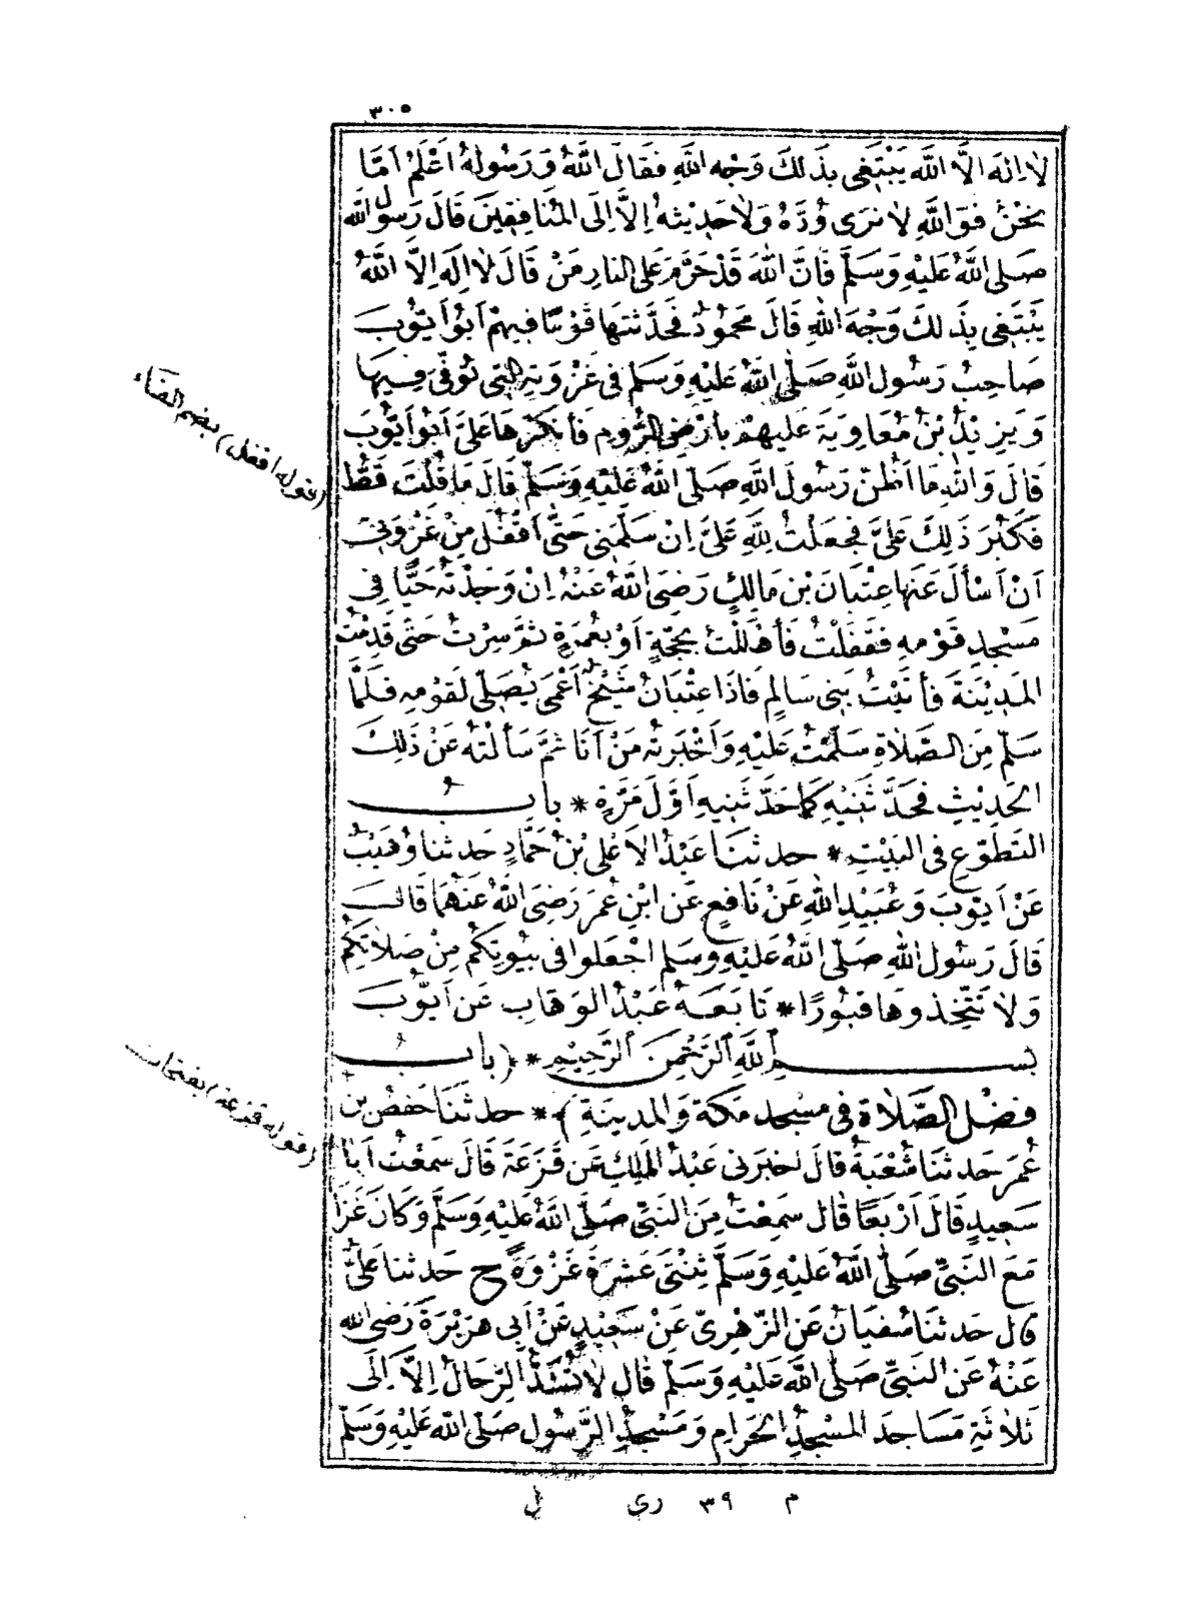 ٣٠٥
لَا اِلٰهَ اِلَّا اللّٰهُ يَبْتَغِى بِذَلِكَ وَجْهَ اللّٰهِ فَقَالَ اللّٰهُ وَرَسُولُهُ اَعْلَمُ اَمَّا
نَحْنُ فَوَاللّٰهِ لَا نَرَى وُدَّهُ وَلَا حَدِيْثَهُ اِلَّا اِلَى الْمُنَافِقِيْنَ قَالَ رَسُولُ اللّٰهِ
صَلَى اللّٰهُ عَلَيْهِ وَسَلَّمَ فَاِنَّ اللّٰهَ قَدْ حَرَّمَ عَلَى النَارِ مَنْ قَالَ لَا اِلَهَ اِلَّا اللّٰهُ
يَبْتَغِى بِذَلِكَ وَجْهَ اللّٰهِ قَالَ مَحْمُوْدٌ فَحَدَّثْتُهَا قَوْمًا فِيهِمْ اَبُوْ اَيُّوْبَ
صَاحِبُ رَسُولِ اللّٰهِ صَلَّى اللّٰهُ عَلَيْهِ وَسَلَّمَ فِى غَزْوَتِهِ الَّتِى تُوُفِّىَ فِيهَا
وَيَزِيْدُ بْنُ مُعَاوِيَةَ عَلَيْهِمْ بِأَرْضِ الرُّوْمِ فَأَنْكَرَهَا عَلَىَّ اَبُوْ اَيُّوْبَ
قَالَ وَاللّٰهِ مَا اَظُنُّ رَسُولَ اللّٰهِ صَلَّى اللّٰهُ عَلَيْهِ وَسَلَّمَ قَالَ مَا قُلْتَ قَطُّ
فَكَبُرَ ذَلِكَ عَلَىَّ فَجَعَلْتُ لِلّٰهِ عَلَىَّ اِنْ سَلَّمَنِى حَتَّى اَقْفُلَ مِنْ غَزْوَتِى
اَنْ اَسْأَلَ عَنْهَا عِتْبَانَ بْنَ مَالِكٍ رَضِىَ اللّٰهُ عَنْهُ اِنْ وَجَدْتُهُ حَيًّا فِى
مَسْجِدِ قَوْمِهِ فَقَفَلْتُ فَأَهْلَلْتُ بِحَجَّةٍ اَوْ بِعُمْرَةٍ ثُمَّ سِرْتُ حَتَّى قَدِمْتُ
الْمَدِيْنَةَ فَأَتَيْتُ بَنِى سَالِمٍ فَاِذَا عِتْبَانُ شَيْخٌ اَعْمَى يُصَلِّى لِقَوْمِهِ فَلَمَّا
سَلَّمَ مِنَ الصَّلَاةِ سَلَّمْتُ عَلَيْهِ وَاَخْبَرْتُهُ مَنْ اَنَا ثُمَّ سَأَلْتُهُ عَنْ ذَلِكَ
الْحَدِيْثِ فَحَدَّثَنِيْهِ كَمَا حَدَّثَنِيهِ اَوَّلَ مَرَّةٍ * بَابُ
التَّطَوُّعِ فِى الْبَيْتِ * حدثنا عَبْدُ الْاَعْلَى بْنُ حَمَّادٍ حَدثنا وُهَيْبٌ
عَنْ اَيُّوْبَ وَعُبَيْدِ اللّٰهِ عَنْ نَافِعٍ عَنِ ابْنِ عُمَرَ رَضِىَ اللّٰهُ عَنْهُمَا قَالَ
قَالَ رَسُولُ اللّٰهِ صَلَّى اللّٰهُ عَلَيْهِ وَسَلَّمَ اجْعَلُوا فِى بُيُوتِكُمْ مِنْ صَلَاتِكُمْ
وَلَا تَتَّخِذُوهَا قُبُورًا * تَابَعَهُ عَبْدُ الوَهَّابِ عَنْ اَيُّوْبَ
بِسْمِ اللّٰهِ الرَّحْمٰنِ الرَّحِيْمِ * ( بَابُ
فَضْلِ الصَّلَاةِ فِى مَسْجِدِ مَكَّةَ وَالمدينَةِ ) * حدثَنَا حَفصُ بن
عُمَرَ حَدثنَا شُعْبَةُ قالَ اخبَرَنى عَبْدُ المَلِكِ عَن قَزَعَةَ قَالَ سَمِعْتُ اَبَا
سَعِيدٍ قَالَ اَرْبَعًا قَالَ سَمِعْتُ مِنَ النَبِىِّ صَلَّى اللّٰهُ عَلَيْهِ وَسَلَّمَ وَكَانَ غَزَا
مَعَ النَّبِىِّ صَلَّى اللّٰهُ عَلَيْهِ وَسَلَّمَ ثِنْتَىْ عَشَرَةَ غَزْوَةً ح حَدثنا عَلِىٌّ
قالَ حَدثنَا سُفيَانُ عَنِ الزّهرِىِّ عَنْ سَعِيْدٍ عَنْ اَبِى هُرَيْرَةَ رَضِىَ اللّٰهُ
عَنْهُ عَنِ النَّبِىِّ صَلَّى اللّٰهُ عَلَيْهِ وَسَلَّمَ قَالَ لَا تُشَدُّ الرِّحَالُ اِلَّا اِلَى
ثَلَاثَةِ مَسَاجِدَ الْمَسْجِدِ الْحَرَامِ وَمَسْجِدِ الرَّسُولِ صَلَّى اللّٰهُ عَلَيْهِ وَسَلَّمَ
(قوله اقفل) بضم الفاء
(قوله قزعة) بفتحات
م ٣٩ رى ل